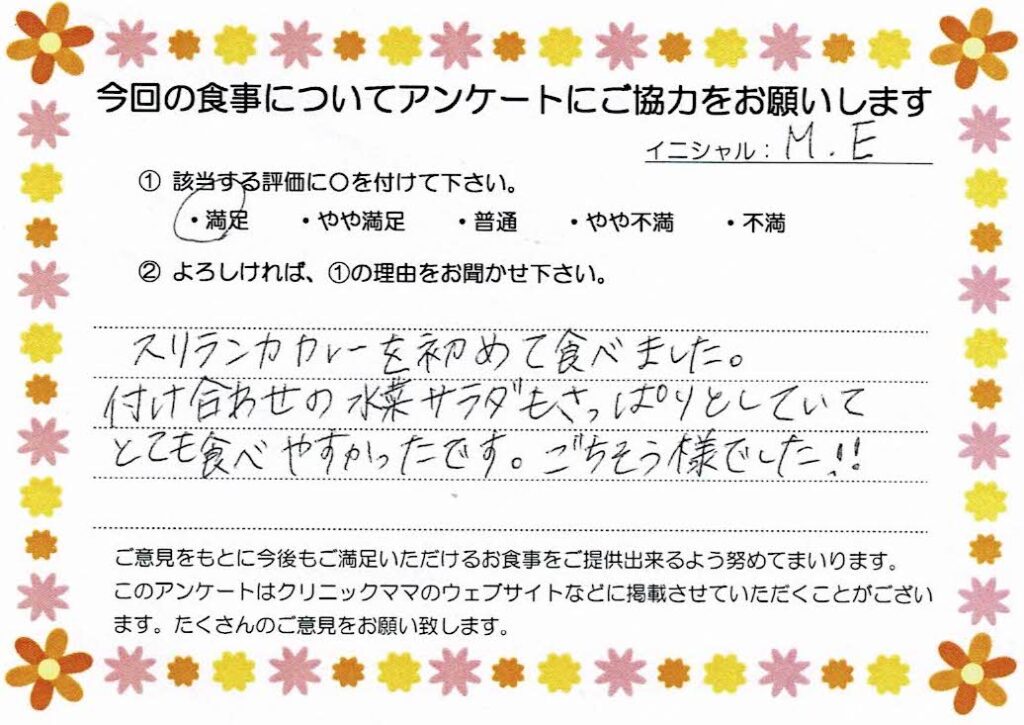 今回の食事についてアンケートにご協力をお願いします
イニシャル：M.E
① 該当する評価に〇を付けて下さい。
・満足　・やや満足　・普通　・やや不満　・不満
② よろしければ、①の理由をお聞かせ下さい。
スリランカカレーを初めて食べました。
付け合わせの水菜サラダもさっぱりとしていて
とても食べやすかったです。ごちそう様でした!!
ご意見をもとに今後もご満足いただけるお食事をご提供出来るよう努めてまいります。
このアンケートはクリニックママのウェブサイトなどに掲載させていただくことがござい
ます。たくさんのご意見をお願い致します。